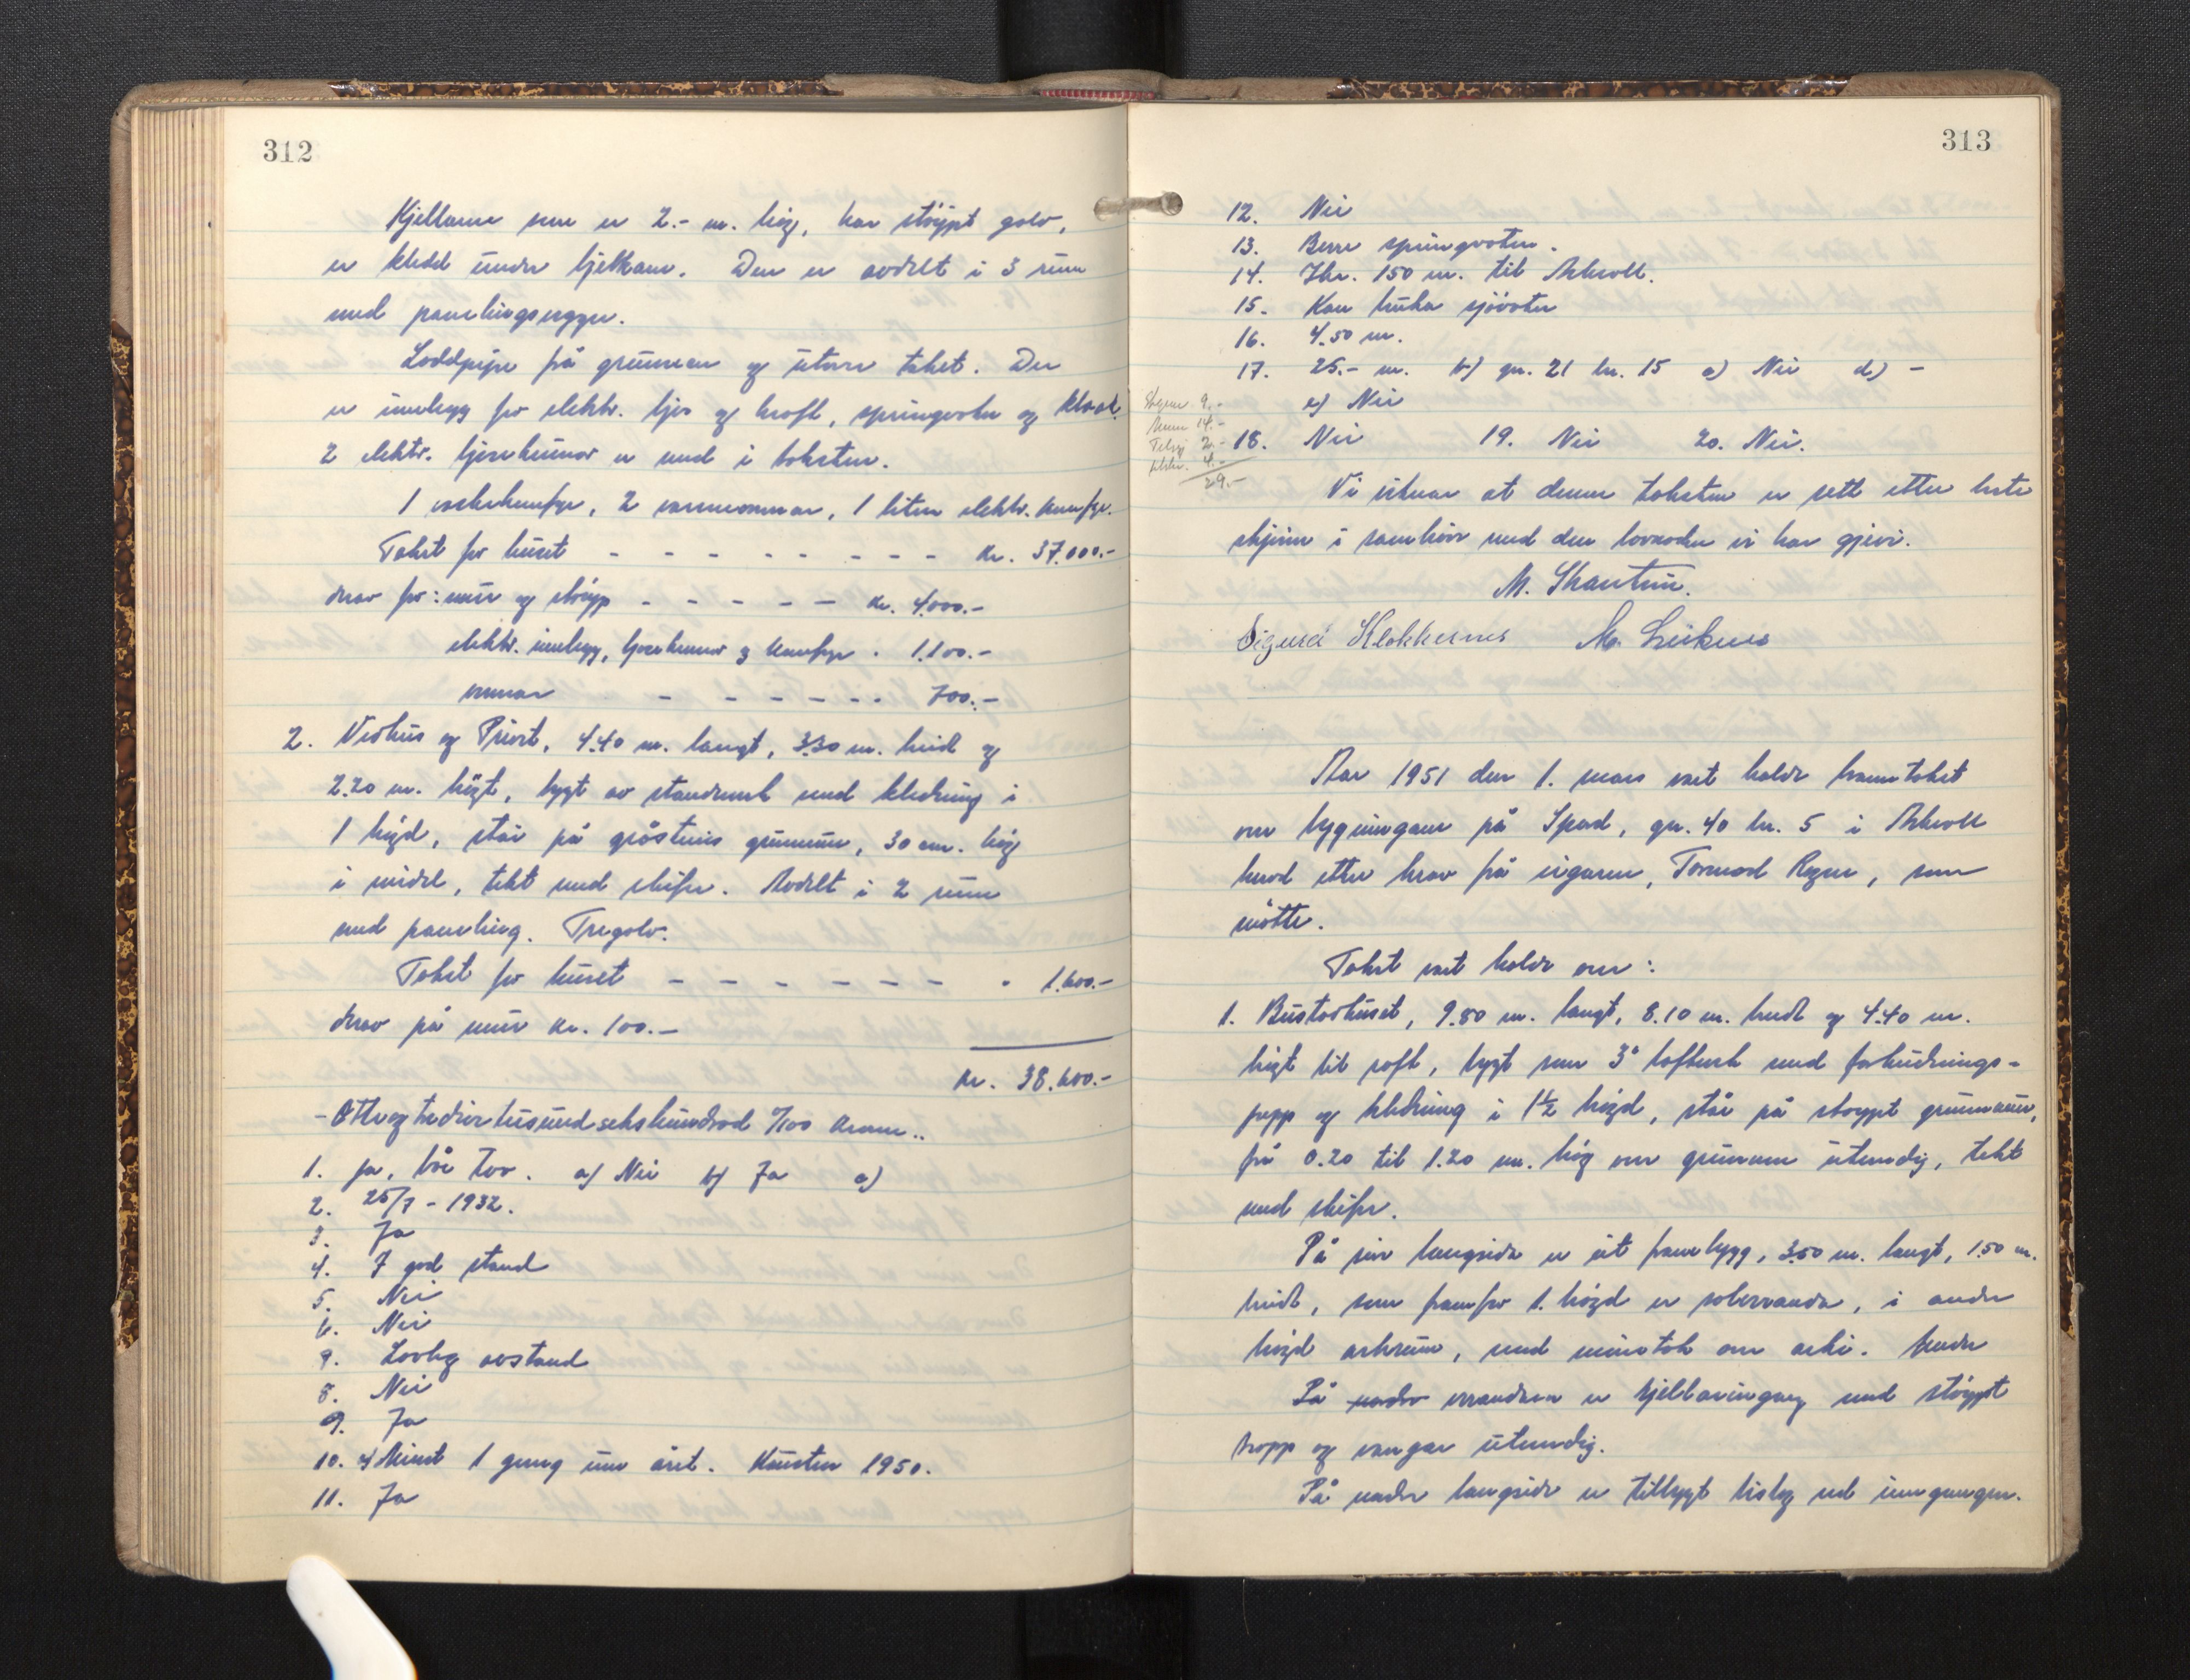 312
Kjellaren som er 2.- m. høg, har støypt golv,
er kledd under bjelkane. Den er avdelt i 3 rum
med panelingsvegger.
Loddpipe frå grunnen og utover taket. Der
er innlegg for elektr. ljos og kraft, springvatn og kloak.
2 elektr. ljosekrunor er med i taksten.
1 vaskekomfyr, 2 varmeomnar, 1 liten elektr. komfyr.
Takst for huset - - - - - - - - kr. 37.000.-
Herav for: mur og støyp - - - - - kr. 4.000.-
elektr. innlegg, ljosekrunor og komfyr . 1.100.-
omnar - - - - - - - 700.-
2. Vedhus og Privet, 4.40 m. langt, 3.30 m. breidt og
2.20 m. høgt, bygt av standverk med kledning i
1 høgd, står på gråsteins grunnmur, 30 cm. høg
i midel, tekt med skifer. Avdelt i 2 rum
med paneling. Tregolv.
Takst for huset - - - - - - - " 1.600.-
Herav på mur kr. 100.-
Kr. 38.600.-
- Otteogtredivetusundsekshundrad 0/100 kroner..
1. Ja, båe two. a) Nei b) Ja c)
2. 25/7 - 1932.
3. Ja
4. I god stand
5. Nei
6. Nei
7. Lovleg avstand
8. Nei
9. Ja
10. a) Minst 1 gong um året. Hausten 1950.
11. Ja
313
12. Nei
13. Berre springvatn.
14. Ihr. 150 m. til Askvoll.
15. Kan bruka sjøvatn
16. 4.50 m.
17. 25.- m. b) gn. 21 bn. 15 c) Nei d) -
e) Nei
18. Nei 19. Nei 20. Nei.
9.-
14.-
2.-
4.-
29.-
Vi vitnar at denne taksten er sett etter beste
skjønn i samhøve med den lovnaden vi har gjeve.
M. Skantun.
Sigurd Klokkernes M. Leiknes
Aar 1951 den 1. mars vart halde branntakst
over bygningane på Spord, gn. 40 bn. 5 i Askvoll
herad etter krav frå eigaren, Tormod Rogne, som
møtte.
Takst vart halde over:
1. Bustadhuset, 9.80 m. langt, 8.10 m. breidt og 4.40 m.
høgt til raft, bygt som 3" lafteverk med forhudnings-
papp og kledning i 1½ høgd, står på støypt grunnmur,
frå 0.20 til 1.20 m. høg over grunnen utvendig, tekt
med skifer.
På eine langsida er eit frambygg, 3.50 m. langt, 1.50 m.
breidt, som framfor 1. høgd er solveranda, i andre
høgd arkrum, med mønetak over arki. Under
På verandaen er kjellarinngang med støypt
tropp og vangar utvendig.
På andre langside er tilbygt bislag ved inngangen.